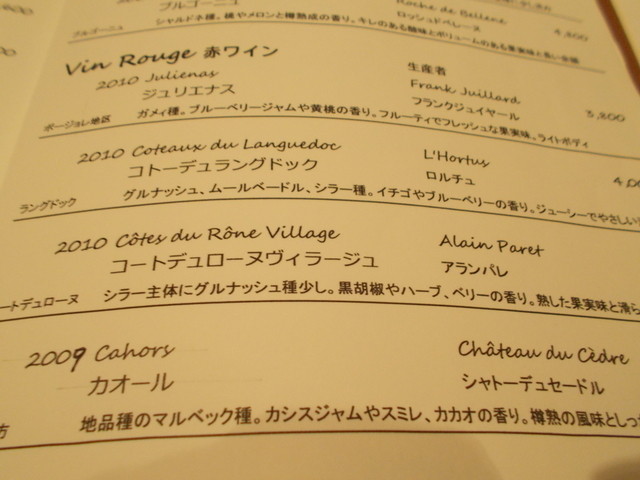 ブルゴーニュ
ブルゴーニュ
シャルドネ種。桃やメロンと樽熟成の香り。キレのある酸味とボリュームのある果実味と長い余韻
Roche de Bellene
ロッシュドベレーヌ
4,800
Vin Rouge 赤ワイン
生産者
2010 Julienas
Frank Juillard
ジュリエナス
フランクジュイヤール
3,800
ボージョレ地区
ガメイ種。ブルーベリージャムや黄桃の香り。フルーティでフレッシュな果実味。ライトボディ
2010 Coteaux du Languedoc
L'Hortus
コトーデュラングドック
ロルチュ
4,0
ラングドック
グルナッシュ、ムールベードル、シラー種。イチゴやブルーベリーの香り。ジューシーでやさしい
2010 Côtes du Rône Village
Alain Paret
コートデュローヌヴィラージュ
アランパレ
ートデュローヌ
シラー主体にグルナッシュ種少し。黒胡椒やハーブ、ベリーの香り。熟した果実味と滑ら
2009 Cahors
Château du Cèdre
カオール
シャトーデュセードル
方
地品種のマルベック種。カシスジャムやスミレ、カカオの香り。樽熟の風味としっ